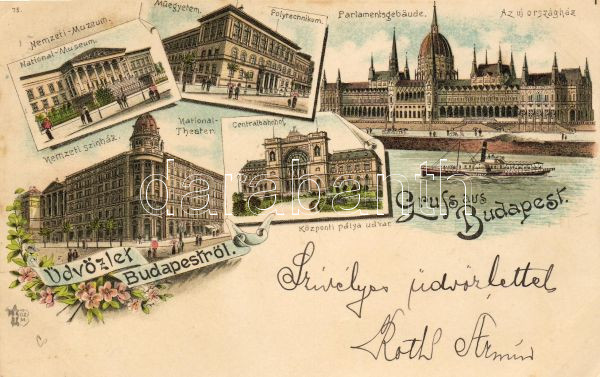 78.
Nemzeti-Muzeum.
National-Museum.
Müegyetem.
Polytechnikum.
Parlamentsgebäude.
Az uj országház
Nemzeti szinház.
National-
Theater.
Centralbahnhof.
Központi pálya udvar.
Gruss aus
Budapest.
Üdvözlet
Budapestről.
darabanth
Szivélyes üdvözlettel
Roth Armin